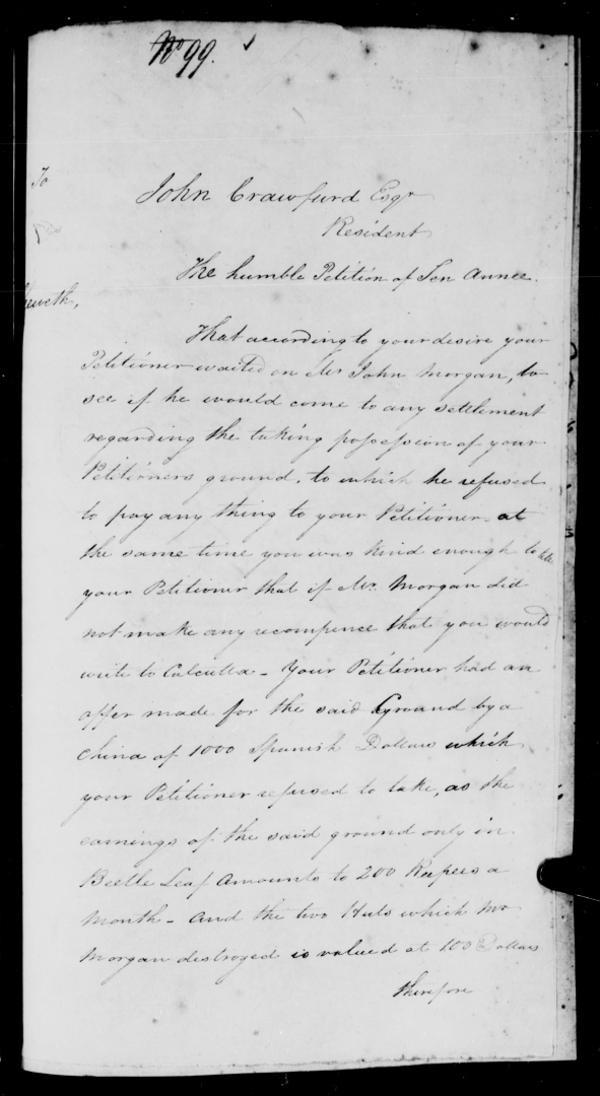 No 99.
To
John Crawfurd Esqr
Resident
The humble Petition of Sen Annee.
eweth,
That according to your desire your
Petitioner waited on Mr. John Morgan, to
see if he would come to any settlement
regarding the taking possession of your
Petitioners ground, to which he refused
to pay any thing to your Petitioner at
the same time you was kind enough to tell
your Petitioner that if Mr. Morgan did
not make any recompence that you would
write to Calcutta - Your Petitioner had an
offer made for the said Ground by a
China of 1000 Spanish Dollars which
your Petitioner refused to take, as the
earnings of the said ground only in
Beetle Leaf Amounts to 200 Rupees a
Month - And the two Huts which Mr
Morgan destroyed is valued at 100 Dollars
Therefore